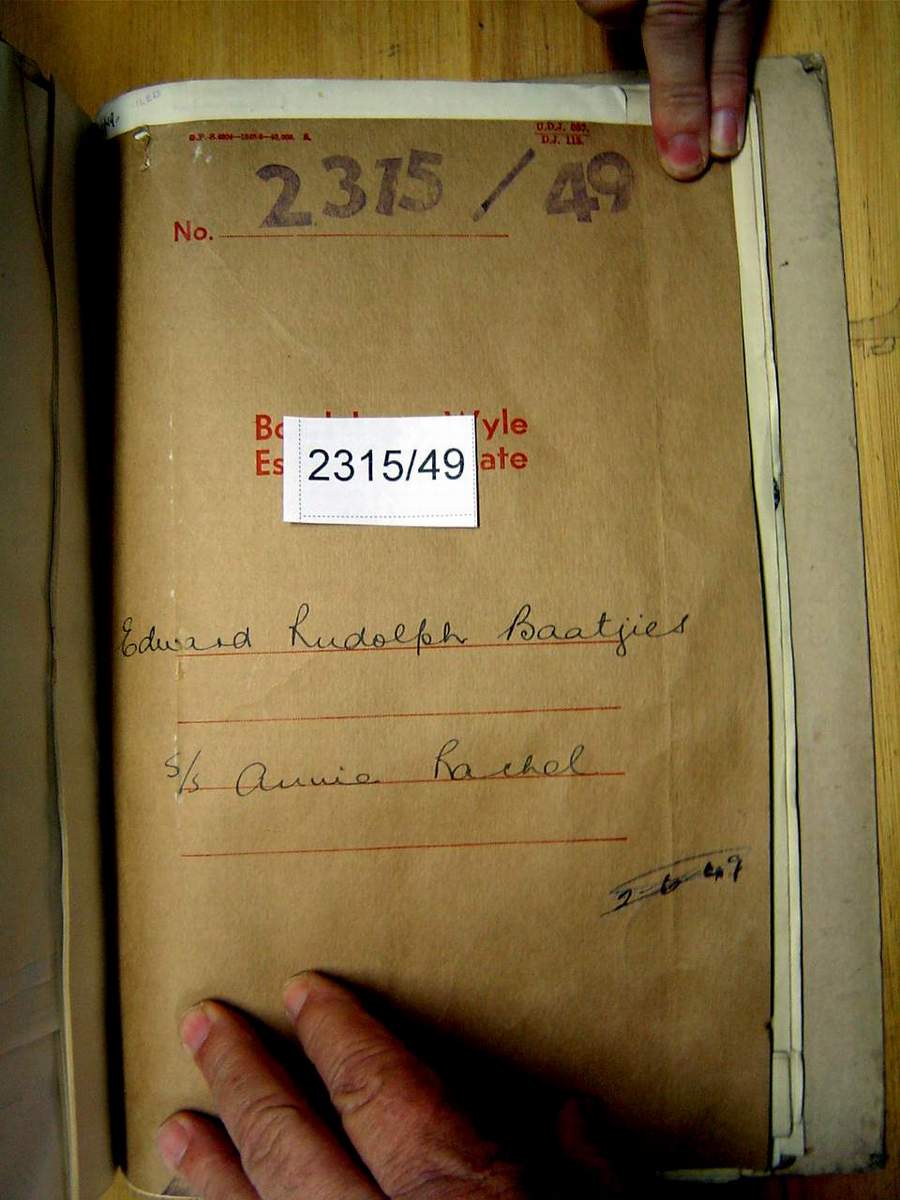 U.D.J.
D.J.
2315/49
No.
yle
ate
2315/49
Edward Rudolph Baatjies
s/s Annie Rachel
2 6 49